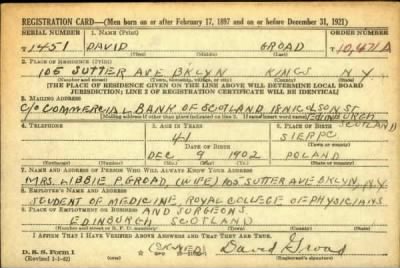 REGISTRATION CARD—(Men born on or after February 17, 1897 and on or before December 31, 1921)
SERIAL NUMBER 1. NAME (Print) ORDER NUMBER
T1451 DAVID GROAD 10,471A
(First) (Middle) (Last)
2. PLACE OF RESIDENCE (Print)
105 SUTTER AVE BKLYN KINGS N.Y.
(Number and street) (Town, township, village, or city) (County) (State)
[THE PLACE OF RESIDENCE GIVEN ON THE LINE ABOVE WILL DETERMINE LOCAL BOARD
JURISDICTION; LINE 2 OF REGISTRATION CERTIFICATE WILL BE IDENTICAL]
3. MAILING ADDRESS
c/o COMMERCIAL BANK OF SCOTLAND 18 NICOLSON ST.
EDINBURGH
[Mailing address if other than place indicated on line 2. If same insert word same]
SCOTLAND
4. TELEPHONE 5. AGE IN YEARS 6. PLACE OF BIRTH
41 SIERPC
DATE OF BIRTH
DEC 9 1902 POLAND
(Exchange) (Number) (Mo.) (Day) (Yr.) (State or country)
7. NAME AND ADDRESS OF PERSON WHO WILL ALWAYS KNOW YOUR ADDRESS
MRS. LIBBIE P. GROAD, (WIFE) 105 SUTTER AVE BKLYN, N.Y.
8. EMPLOYER'S NAME AND ADDRESS
STUDENT OF MEDICINE, ROYAL COLLEGE OF PHYSICIANS
AND SURGEONS
9. PLACE OF EMPLOYMENT OR BUSINESS
EDINBURGH SCOTLAND
(Number and street or R. F. D. number) (Town) (County) (State)
I AFFIRM THAT I HAVE VERIFIED ABOVE ANSWERS AND THAT THEY ARE TRUE.
D. S. S. Form 1 (SIGNED) David Groad
(Revised 1-1-42)